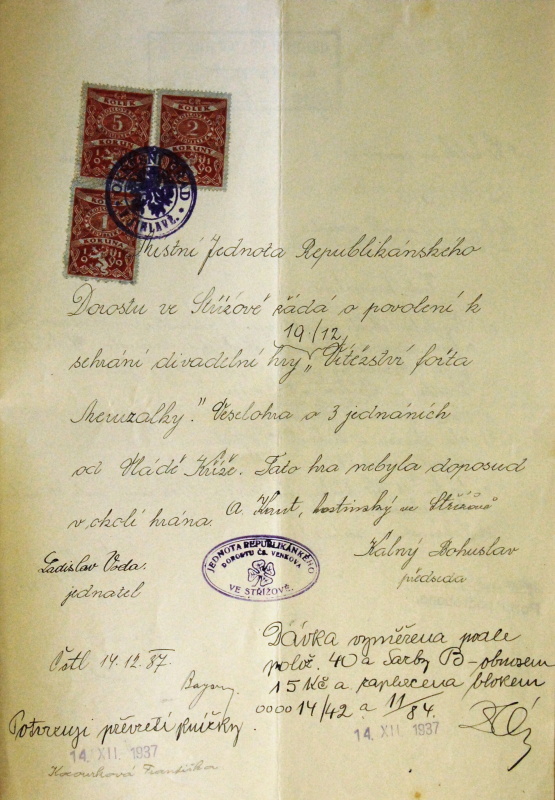 ČR.
KOLEK
5
KORUN
ČR.
KOLEK
2
KORUNY
1
KORUNA
V JIHLAVĚ.
Místní Jednota Republikánského
Dorostu ve Střížově žádá o povolení k
19./12.
sehrání divadelní hry „Vítězství fořta
Meruzalky." Veselohra o 3 jednáních
od Vládi Kříže. Tato hra nebyla doposud
v okolí hrána. A. Kaut, hostinský ve Střížově
Ladislav Voda.
jednatel
JEDNOTA REPUBLIKÁNKÉHO
DOROSTU ČS. VENKOVA
VE STŘÍŽOVĚ.
Kalný Bohuslav
předseda
Dávka vyměřena podle
polož. 40 a Sazby B - obnosem
15 Kč a zaplacena blokem
0000 14/42 a 11/84.
14. XII. 1937
14.12.37.
Potvrzuji převzetí knížky.
14. XII. 1937
Františka